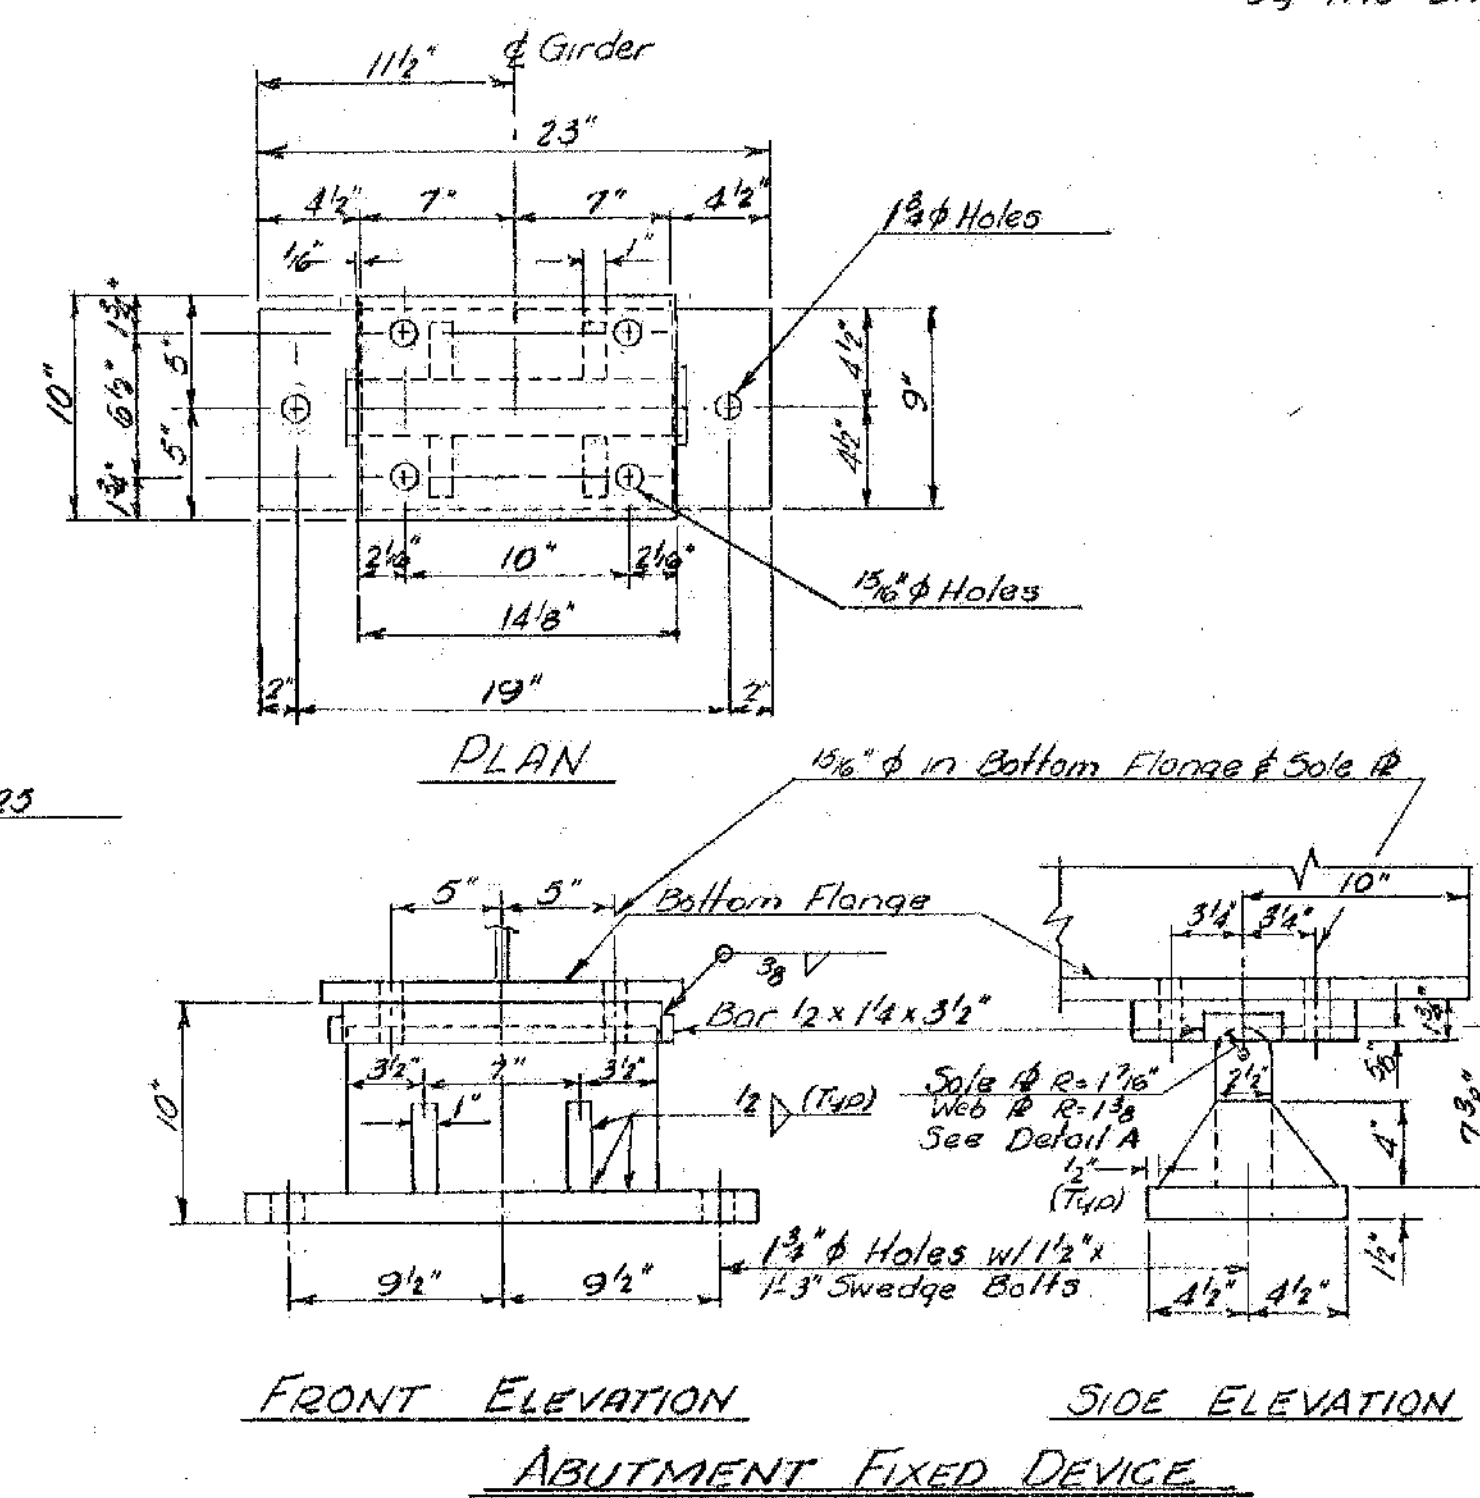 ℄ Girder
11½"
23"
4½" 7" 7" 4½"
1¾ ϕ Holes
1/16" 1"
10"
1¾"
6½"
1¾"
5"
5"
4½"
4½"
9"
2 1/16" 10" 2 1/16"
15/16" ϕ Holes
14 1/8"
2" 19" 2"
PLAN
15/16" ϕ in Bottom Flange & Sole ℙ
25
5" 5"
Bottom Flange
10"
3¼" 3¼"
3/8
Bar ½ x 1¼ x 3½"
1 3/8"
10"
3½" 7" 3½"
1"
½ (Typ)
Sole ℙ R=1 7/16"
Web ℙ R=1 3/8
See Detail A
2½"
5/16"
4"
½"
(Typ)
1¾" ϕ Holes w/ 1½" x
1'-3" Swedge Bolts
1½"
9½" 9½"
4½" 4½"
FRONT ELEVATION
SIDE ELEVATION
ABUTMENT FIXED DEVICE